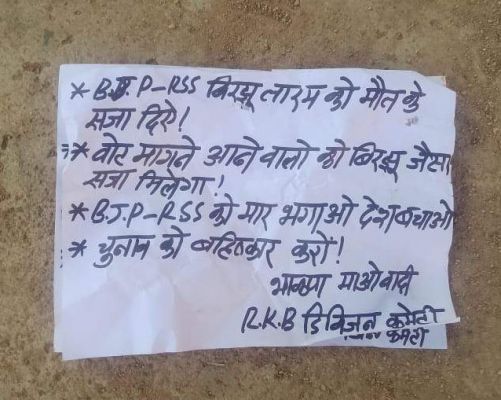 * B.J.P-RSS बिरझू तारम को मौत के
सजा दिऐ!
* वोट मागने आने वालो को बिरझू जैसा
सजा मिलेगा!
* B.J.P-RSS को मार भगाओ देश बचाओ
* चुनाव को बहिष्कार करो!
भाकपा माओवादी
R.K.B डिविजन कमेटी
कमेटी